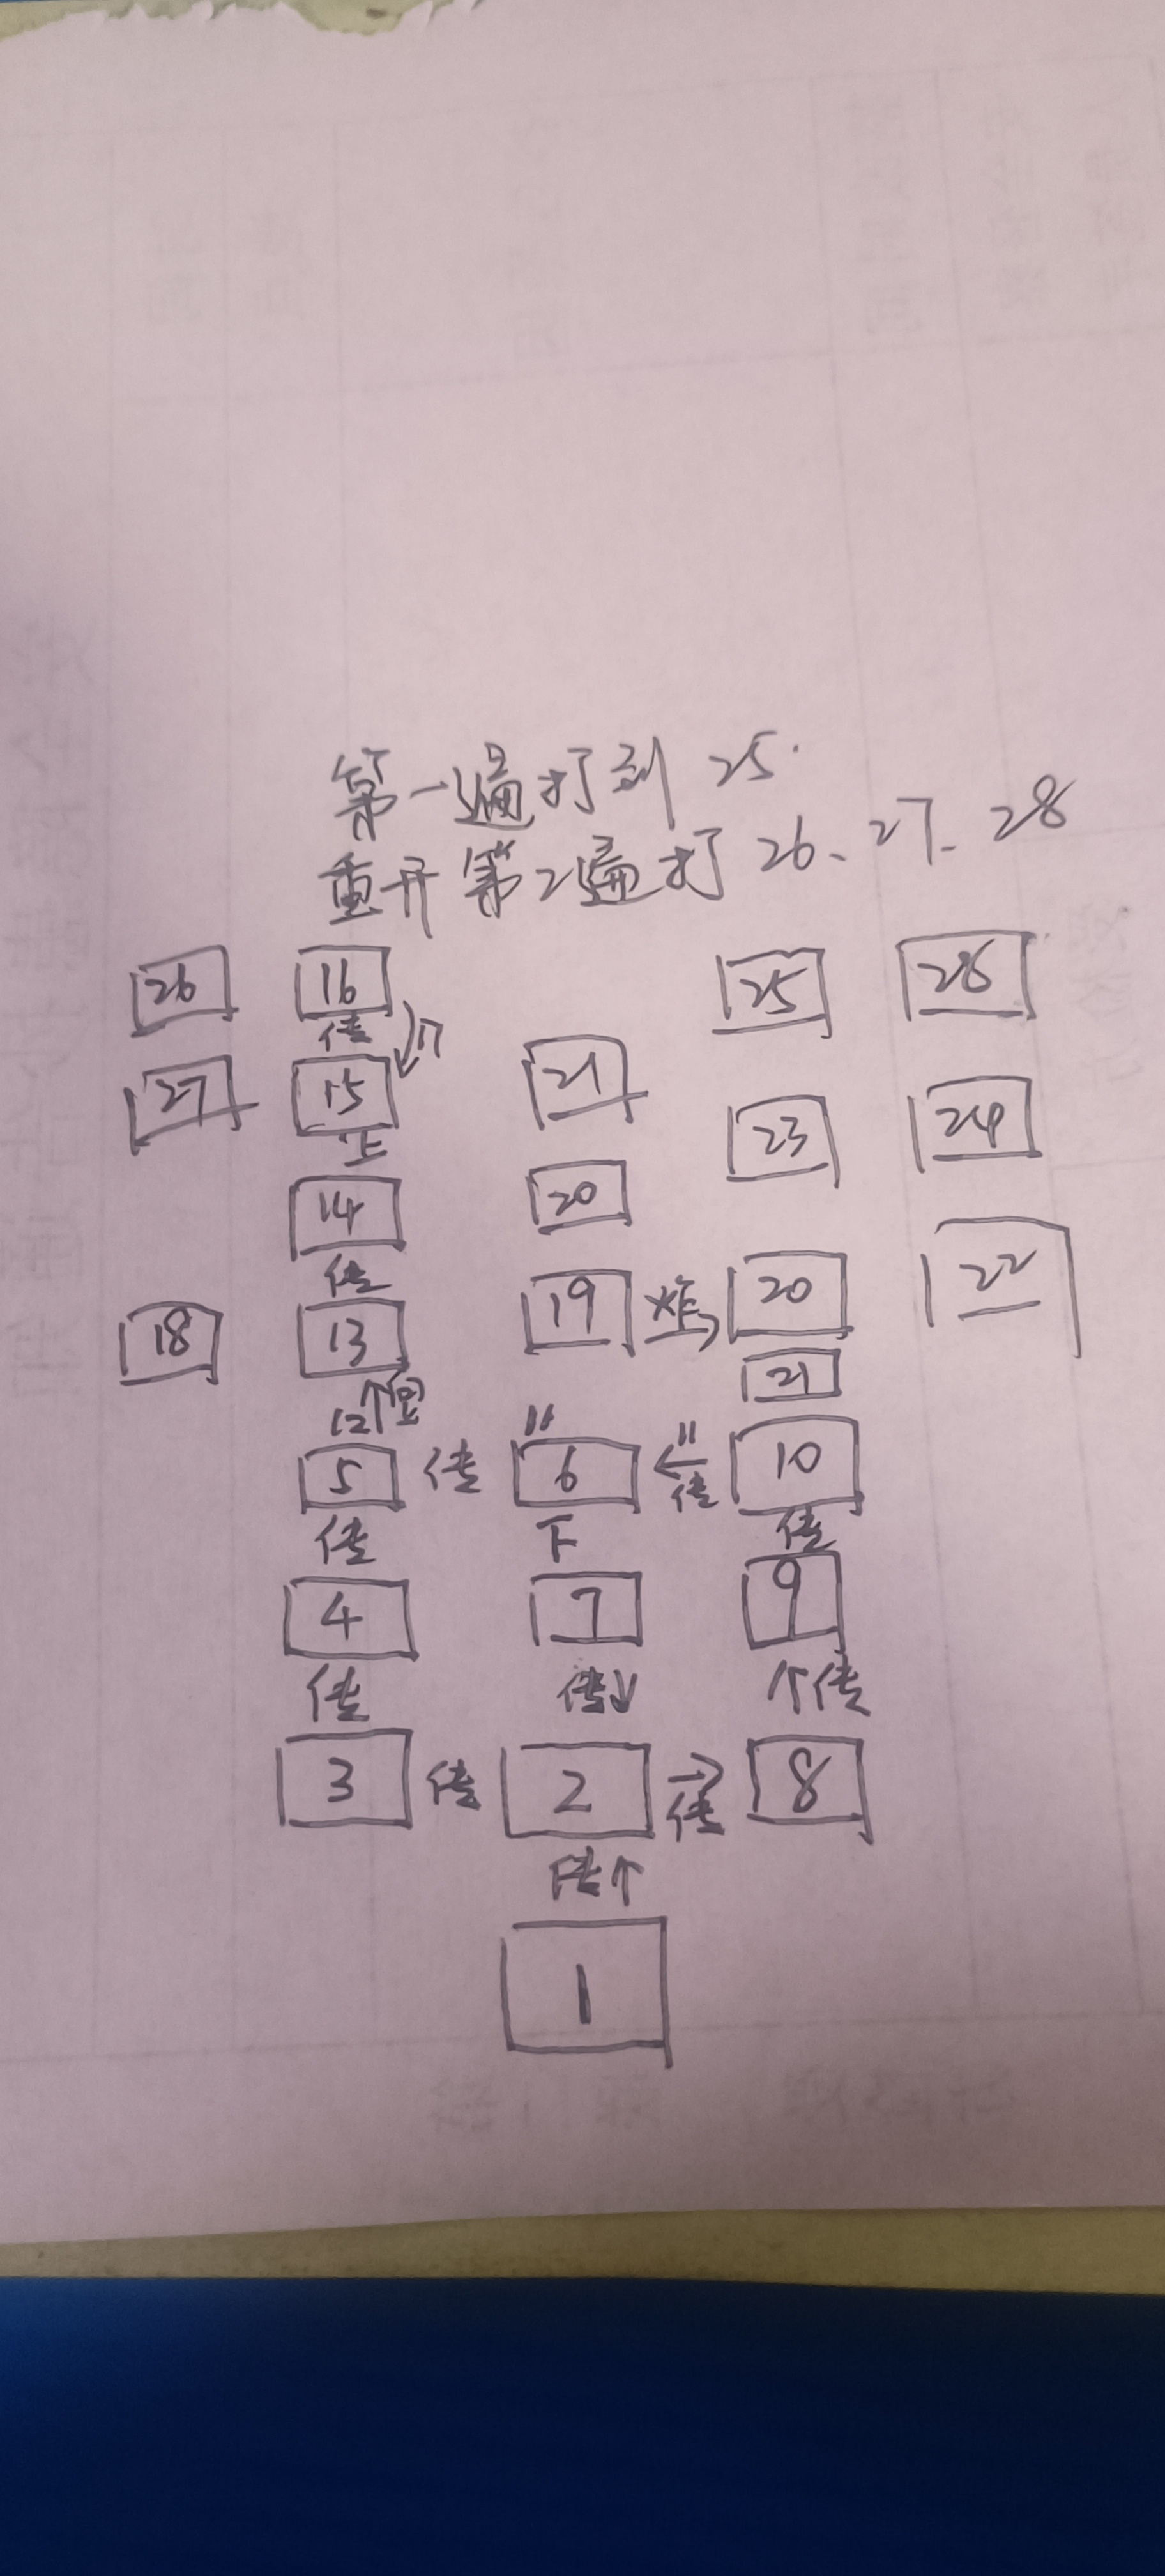 第一遍打到 25.
重开第2遍打 26、27、28
26 16 25 28
传 17
27 15 21 23 24
上
14 20
传
18 13 19 炸 20 22
21
12↑回
11 11
5 传 6 ← 传 10
传 下 传
4 7 9
传 传↓ ↑传
3 传 2 → 传 8
传↑
1